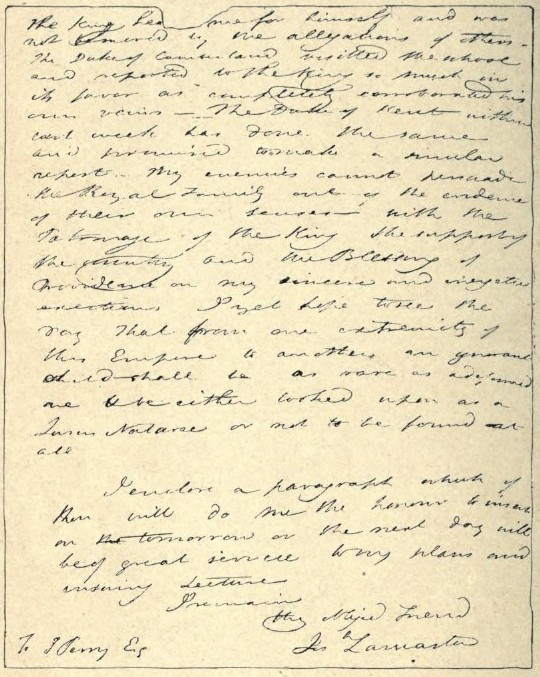 The King hea me for himself and was
not by the allegations of others –
The Duke of Cumberland visited the school
and reported to the King so much in
its favor as completely corroborated his
own views – The Duke of Kent within
last week has done the same
and promised to make a similar
report. My enemies cannot persuade
the Royal Family out of the evidence
of their own senses – with the
Patronage of the King the support of
the country and the Blessing of
Providence on my sincere and
exertions I yet hope to see the
day that from one extremity of
this Empire to another an ignorant
child shall be as rare as
one & be either looked upon as a
Lusus Naturae or not to be found at
all
I enclose a paragraph which if
thou will do me the honour to insert
on tomorrow or the next day will
be of great service to my plans and
ensuing Lecture
I remain
thy Friend
Jos Lancaster
To J Perry Esq